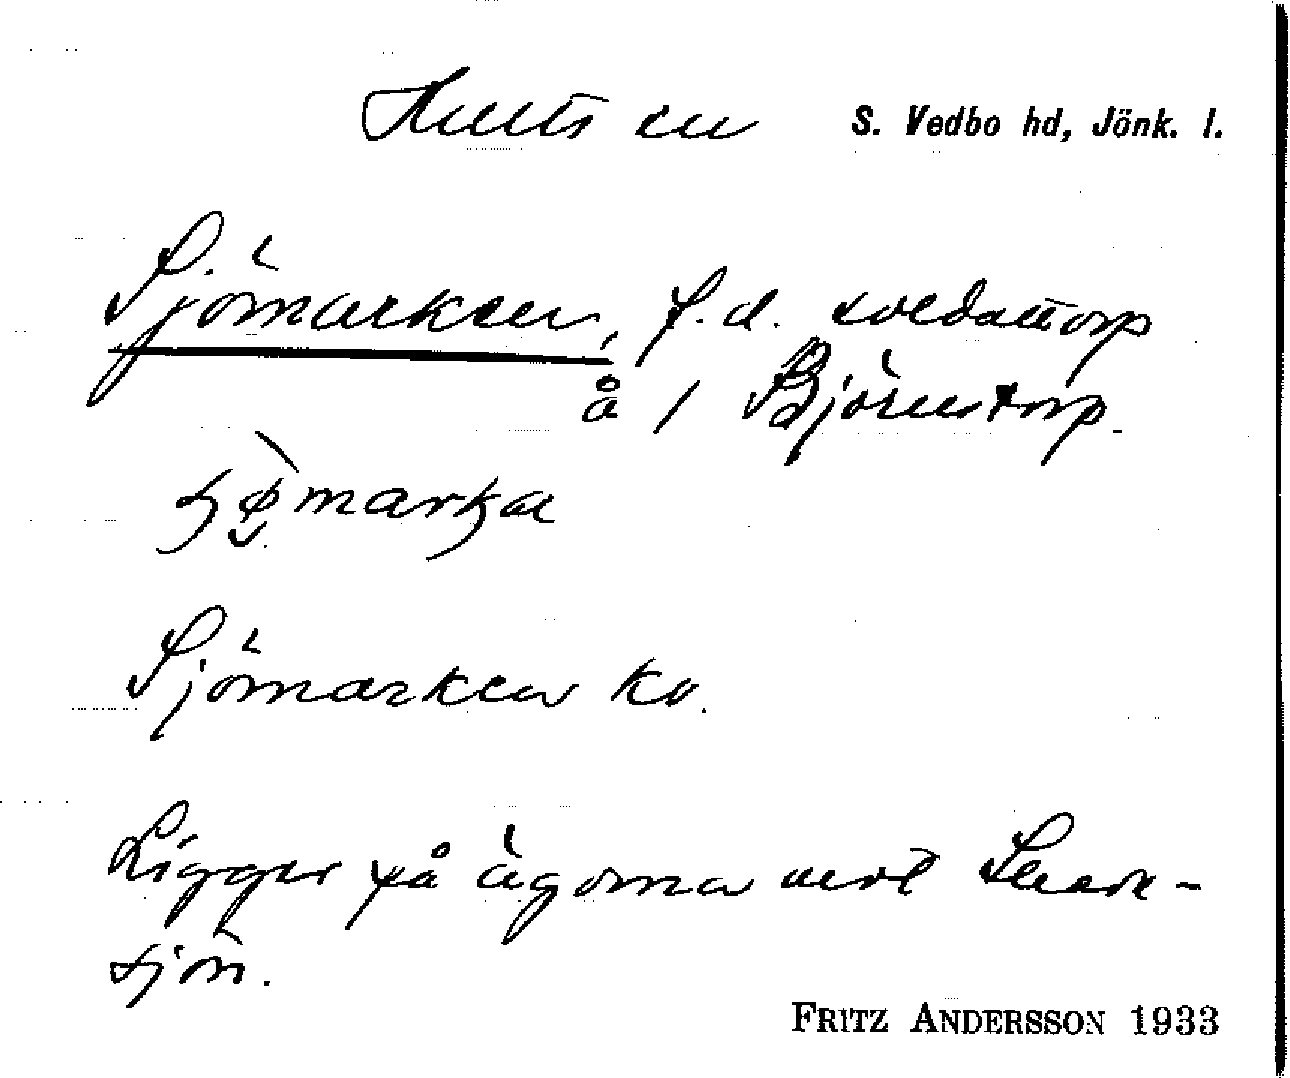 Hults sn S. Vedbo hd, Jönk. l.
Sjömarken, f.d. soldattorp
å 1 Björnstorp.
marka
Sjömarken ka.
Ligger på ägorna mot
sjön.
FRITZ ANDERSSON 1933